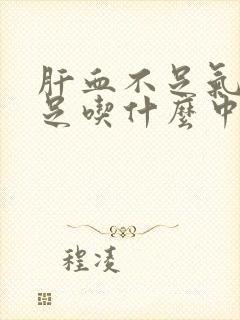 肝血不足氣
足喫什麼中
程凌